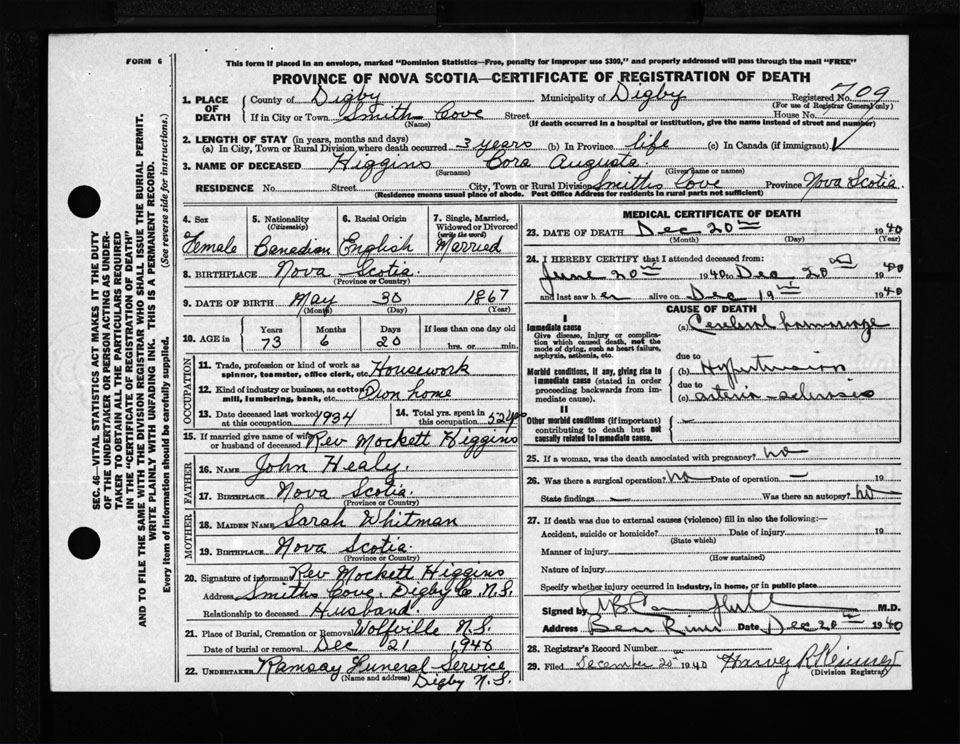 FORM 6
This form if placed in an envelope, marked "Dominion Statistics—Free, penalty for improper use $300," and properly addressed will pass through the mail "FREE"
PROVINCE OF NOVA SCOTIA—CERTIFICATE OF REGISTRATION OF DEATH
SEC. 46—VITAL STATISTICS ACT MAKES IT THE DUTY
OF THE UNDERTAKER OR PERSON ACTING AS UNDER-
TAKER TO OBTAIN ALL THE PARTICULARS REQUIRED
IN THE "CERTIFICATE OF REGISTRATION OF DEATH"
AND TO FILE THE SAME WITH THE DIVISION REGISTRAR WHO SHALL ISSUE THE BURIAL PERMIT.
WRITE PLAINLY WITH UNFADING INK. THIS IS A PERMANENT RECORD.
Every item of Information should be carefully supplied. (See reverse side for instructions.)
1. PLACE OF DEATH
County of Digby Municipality of Digby Registered No. 709
(For use of Registrar General only)
If in City or Town Smith Cove Street House No.
(Name) (If death occurred in a hospital or institution, give the name instead of street and number)
2. LENGTH OF STAY (in years, months and days)
(a) In City, Town or Rural Division where death occurred 3 years (b) In Province life (c) In Canada (if immigrant)
3. NAME OF DECEASED Higgins Cora Augusta
(Surname) (Given name or names)
RESIDENCE No. Street City, Town or Rural Division Smiths Cove Province Nova Scotia.
(Residence means usual place of abode. Post Office Address for residents in rural parts not sufficient)
4. Sex Female
5. Nationality (Citizenship) Canadian
6. Racial Origin English
7. Single, Married, Widowed or Divorced (write the word) Married
8. BIRTHPLACE Nova Scotia.
(Province or Country)
9. DATE OF BIRTH May 30 1867
(Month) (Day) (Year)
10. AGE in Years Months Days If less than one day old
73 6 20 hrs. or min.
OCCUPATION
11. Trade, profession or kind of work as spinner, teamster, office clerk, etc. Housework
12. Kind of industry or business, as cotton mill, lumbering, bank, etc. Own home
13. Date deceased last worked at this occupation 1934
14. Total yrs. spent in this occupation 52 yrs
15. If married give name of wife or husband of deceased. Rev Mockett Higgins
FATHER
16. NAME John Healy.
17. BIRTHPLACE Nova Scotia.
(Province or Country)
MOTHER
18. MAIDEN NAME Sarah Whitman
19. BIRTHPLACE Nova Scotia.
(Province or Country)
20. Signature of informant Rev Mockett Higgins
Address Smiths Cove, Digby Co. N.S.
Relationship to deceased Husband.
21. Place of Burial, Cremation or Removal Wolfville N.S.
Date of burial or removal Dec 21 1940
22. UNDERTAKER Ramsay Funeral Service
(Name and address) Digby N.S.
MEDICAL CERTIFICATE OF DEATH
23. DATE OF DEATH Dec 20th 1940
(Month) (Day) (Year)
24. I HEREBY CERTIFY that I attended deceased from:
June 20th 1940 to Dec 20 1940
and last saw her alive on Dec 19th 1940
CAUSE OF DEATH
I
Immediate cause
Give disease, injury or complication which caused death, not the mode of dying, such as heart failure, asphyxia, asthenia, etc.
(a) Cerebral hammorage
due to
Morbid conditions, if any, giving rise to immediate cause (stated in order proceeding backwards from immediate cause).
(b) Hypertension
due to
(c) arterio-sclerosis
II
Other morbid conditions (if important) contributing to death but not causally related to immediate cause.
25. If a woman, was the death associated with pregnancy? no
26. Was there a surgical operation? no Date of operation — 19
State findings — Was there an autopsy? no
27. If death was due to external causes (violence) fill in also the following:—
Accident, suicide or homicide? Date of injury 19
(State which)
Manner of injury
(How sustained)
Nature of injury
Specify whether injury occurred in industry, in home, or in public place
Signed by M.D.
Address Bear River Date Dec 20th 1940
28. Registrar's Record Number
29. Filed December 20th 1940 Harvey R
(Division Registrar)